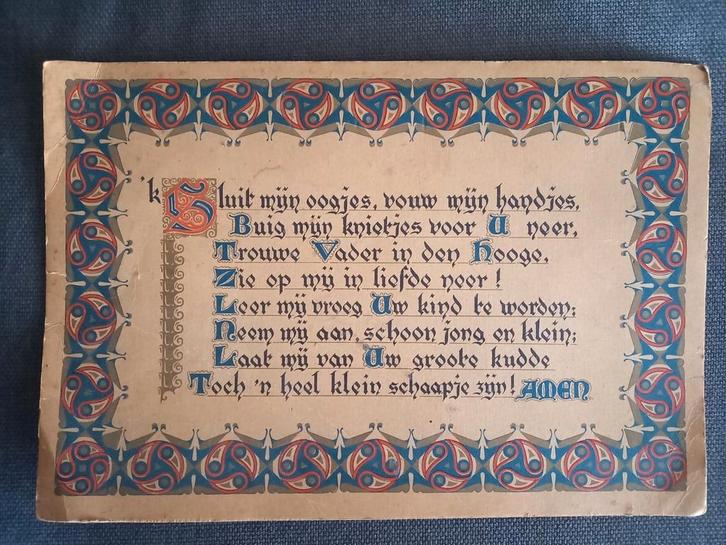 'k Sluit mijn oogjes, vouw mijn handjes,
Buig mijn knietjes voor U neer,
Trouwe Vader in den Hooge,
Zie op mij in liefde neer!
Leer mij vroeg Uw kind te worden;
Neem mij aan, schoon jong en klein;
Laat mij van Uw groote kudde
Toch 'n heel klein schaapje zijn! AMEN